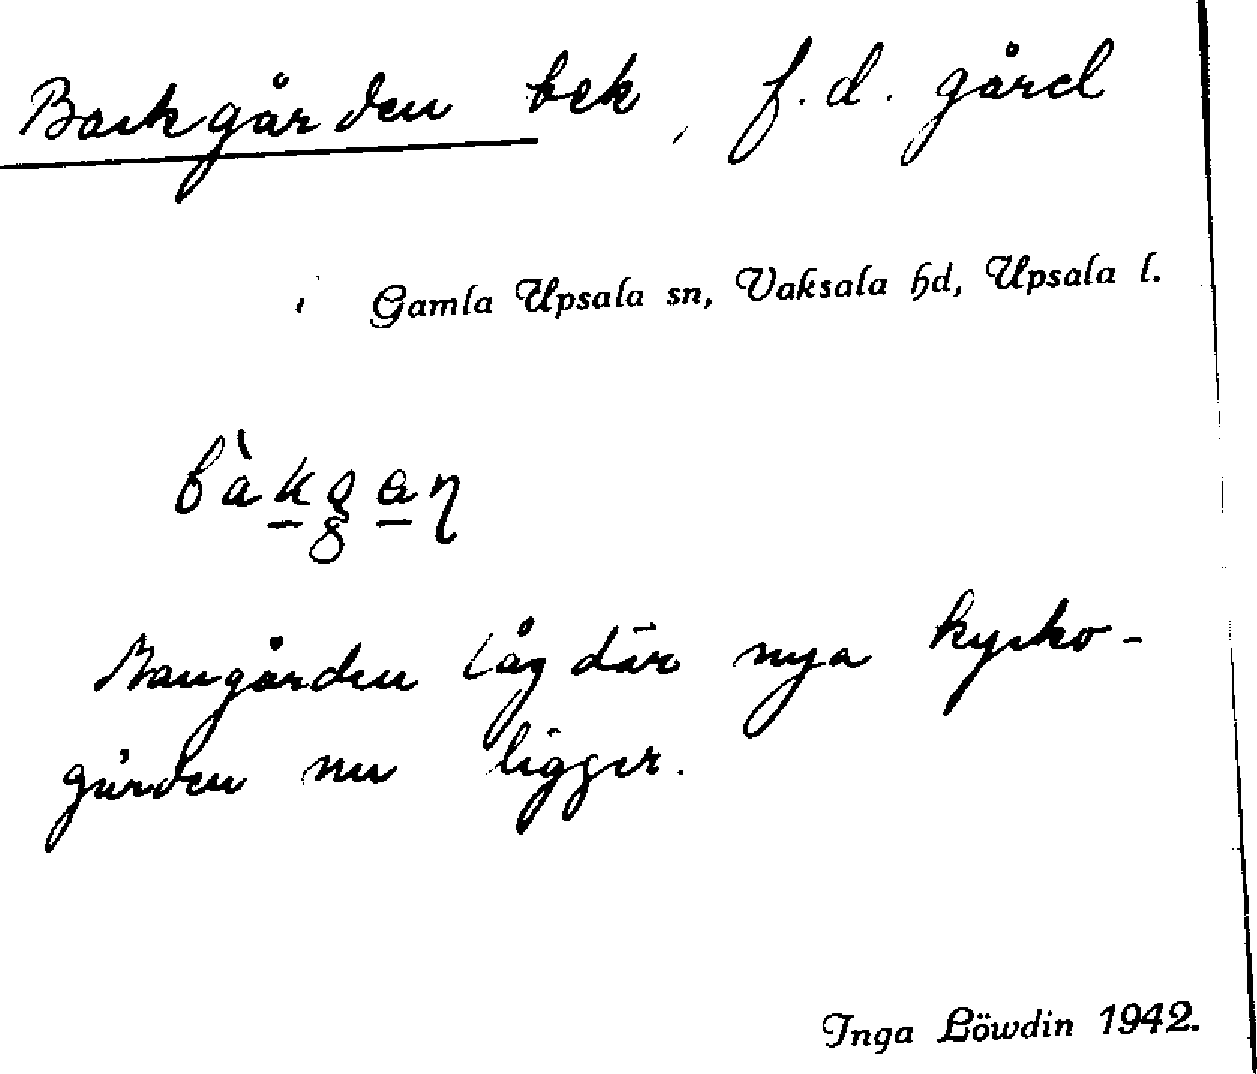 Backgården bek, f.d. gård
Gamla Upsala sn, Vaksala hd, Upsala l.
låg där nya kyrko-
gården nu ligger.
Inga Löwdin 1942.